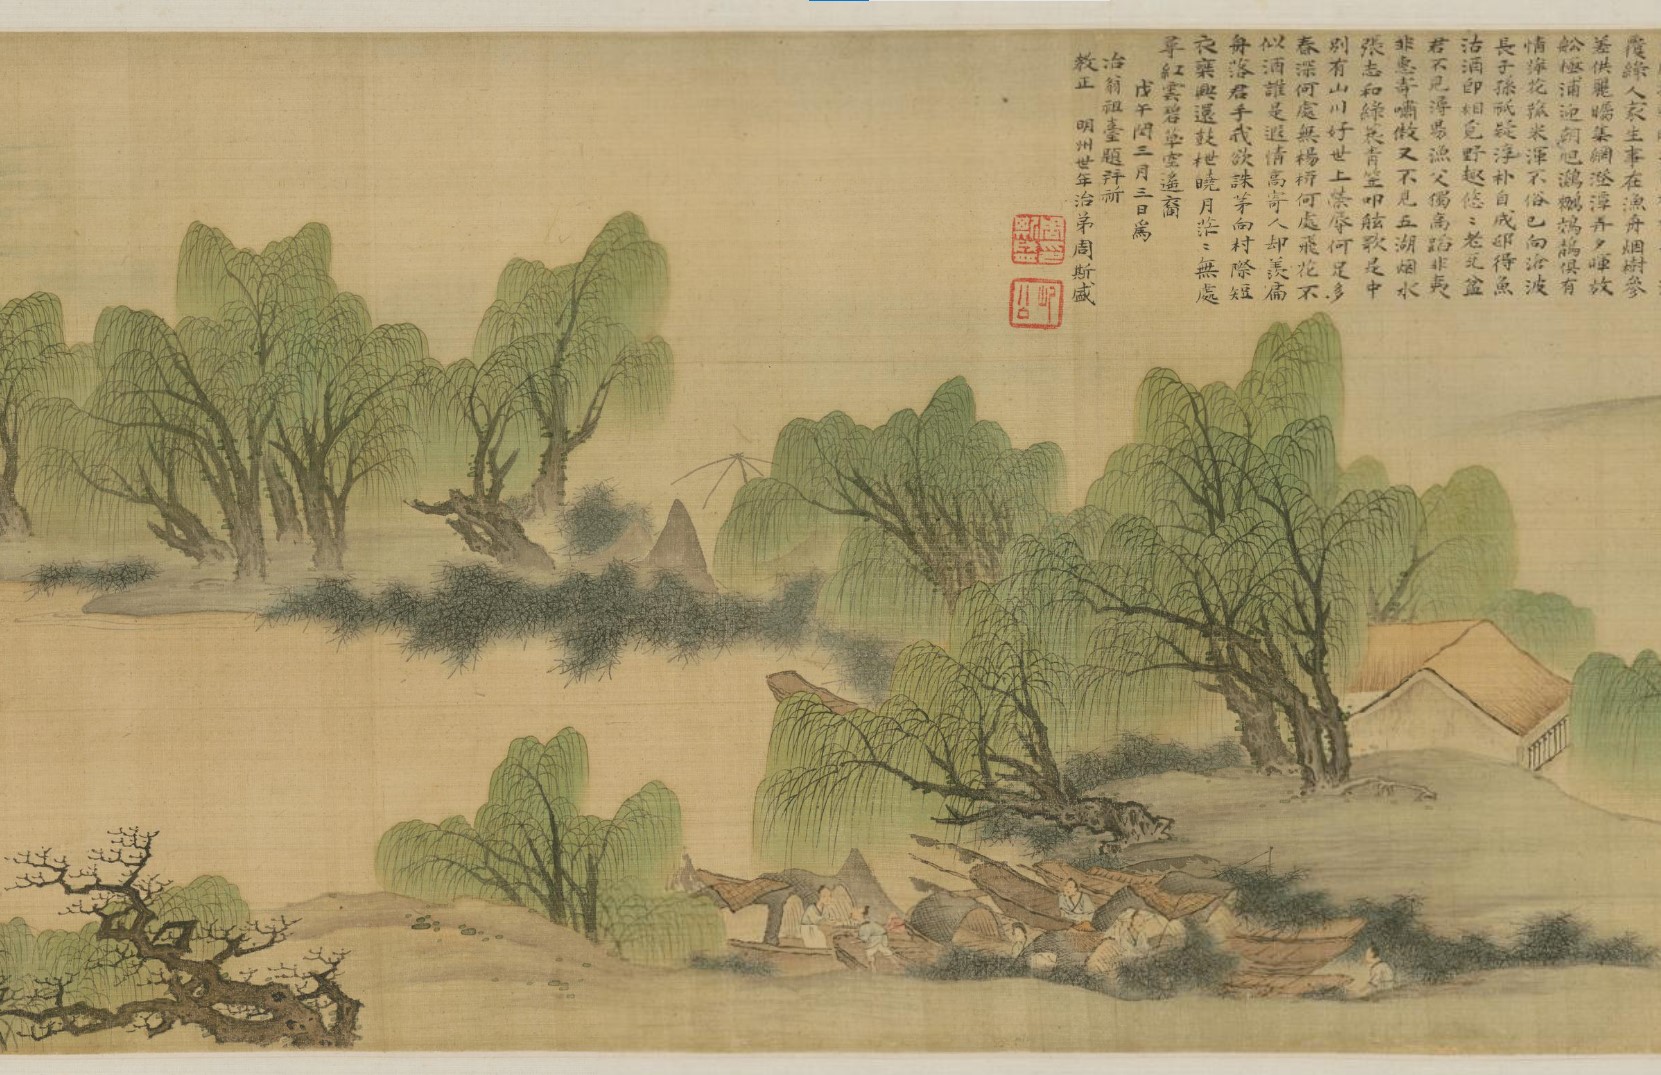 覆綠人家生事在漁舟烟樹參
差供曬曝集網澄潭弄夕暉放
舩極浦迎朝旭鸂鶒鵁鶄俱有
情蘋花菰米渾不俗已向滄波
長子孫祇疑淳朴自成邨得魚
沽酒即相覓野趣悠〻老瓦盆
君不見潯昜漁父獨高蹈非夷
非惠寄嘯傲又不見五湖烟水
張志和綠蓑青笠叩舷歌是中
別有山川好世上榮辱何足多
春深何處無楊桥何處飛花不
似酒誰是遐情高寄人却羨扁
舟落君手我欲誅茅向村際短
衣槳興還鼓枻曉月茫〻無處
尋紅雲碧草空遙裔
戊午閏三月三日為
冶翁祖臺題并祈
教正 明州世年治弟周斯盛